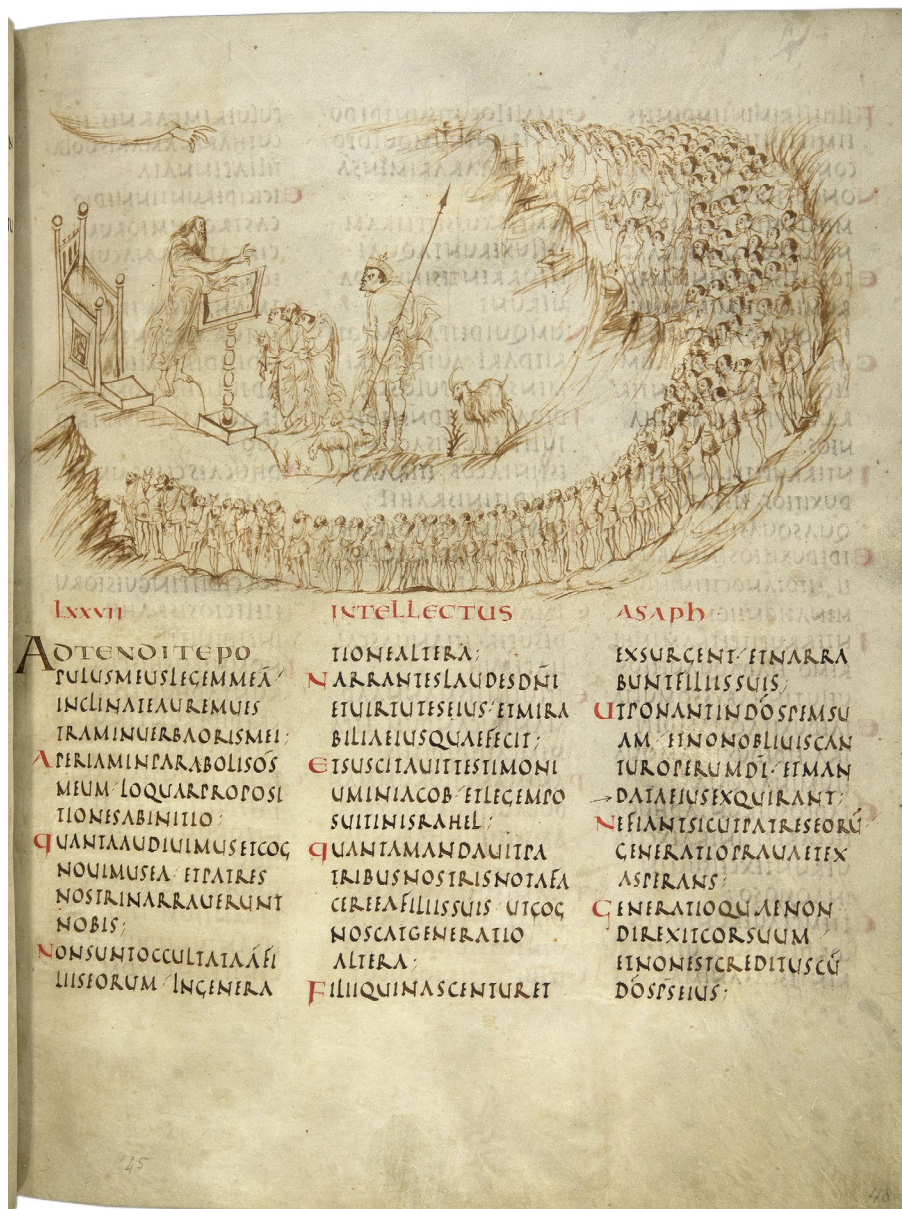 LXXVII INTELLECTUS ASAPH
ADTENDITEPO
PULUSMEUSLEGEMMEĀ
INCLINATEAUREMUES
TRAMINUERBAORISMEI;
APERIAMINPARABOLISOS
MEUM LOQUARPROPOSI
TIONESABINITIO;
QUANTAAUDIUIMUSETCOG
NOUIMUSEA ETPATRES
NOSTRINARRAUERUNT
NOBIS;
NONSUNTOCCULTATAAFI
LIISEORUM INGENERA
TIONEALTERA;
NARRANTESLAUDESDNI
ETUIRTUTESEIUS ETMIRA
BILIAEIUSQUAEFECIT;
ETSUSCITAUITTESTIMONI
UMINIACOB ETLEGEMPO
SUITINISRAHEL;
QUANTAMANDAUITPA
TRIBUSNOSTRISNOTAFA
CEREEAFILIISSUIS UTCOG
NOSCATGENERATIO
ALTERA;
FILIIQUINASCENTURET
EXSURGENT ETNARRA
BUNTFILIISSUIS;
UTPONANTINDOSPEMSU
AM ETNONOBLIUISCAN
TUROPERUMDI ETMAN
DATAEIUSEXQUIRANT;
NEFIANTSICUTPATRESEORŪ
GENERATIOPRAUAETEX
ASPERANS;
GENERATIOQUAENON
DIREXITCORSUUM
ETNONESTCREDITUSCŪ
DOSPSEIUS;
45
48